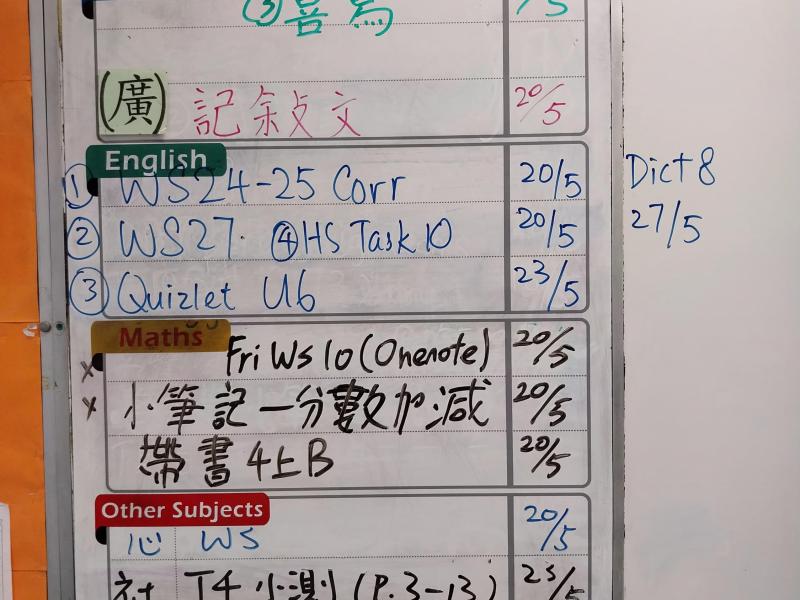 ③ 善 寫 /5
(廣) 記敍文 20/5
English
① WS24-25 Corr 20/5 Dict 8
② WS27. ④HS Task 10 20/5 27/5
③ Quizlet U6 23/5
Maths
Fri Ws 10 (Onenote) 20/5
小筆記一分數加減 20/5
帶書4上B 20/5
Other Subjects
心 WS 20/5
社 T4 小測 (P.3-13) 23/5